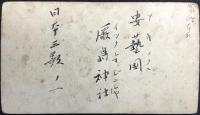 アキノクニ
安藝國
イツクシマジンジャ
厳島神社
日本三景ノ一